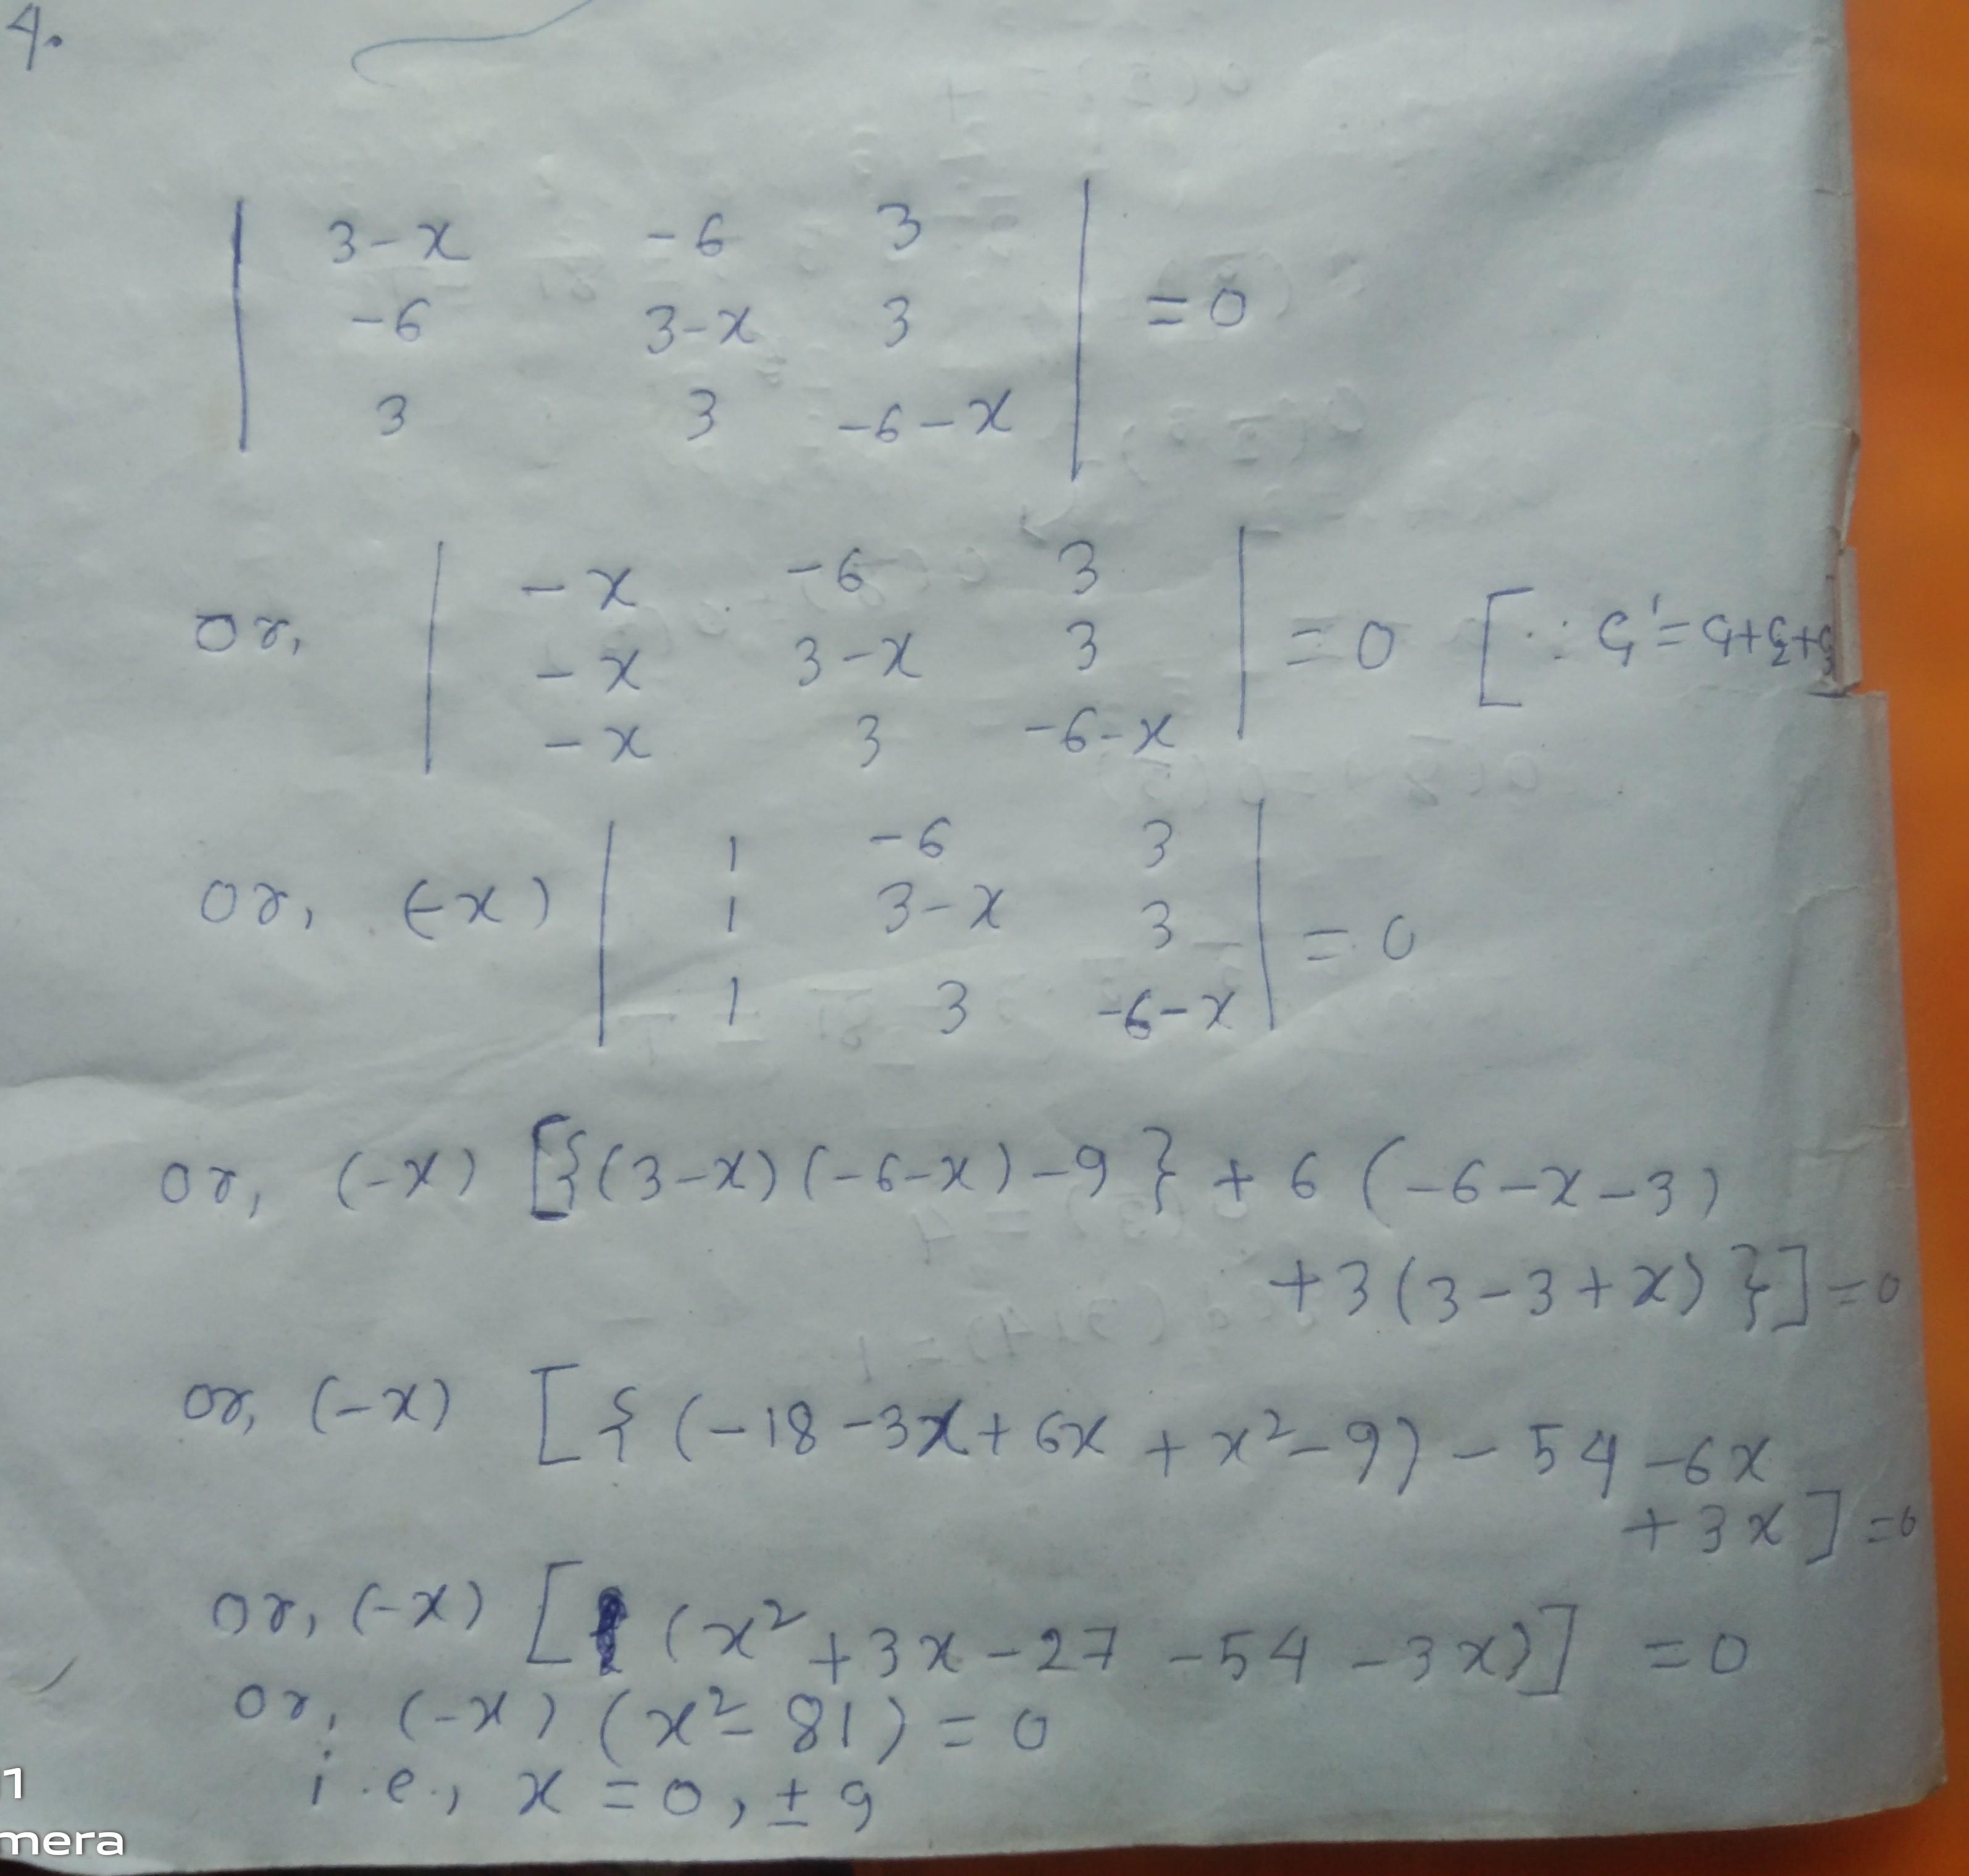 4.
| 3-x -6 3 |
| -6 3-x 3 | = 0
| 3 3 -6-x |
| -x -6 3 |
or, | -x 3-x 3 | = 0 [∵ C₁' = C₁+C₂+C₃
| -x 3 -6-x |
| 1 -6 3 |
or, (-x) | 1 3-x 3 | = 0
| 1 3 -6-x |
or, (-x) [{(3-x)(-6-x)-9} + 6 (-6-x-3)
+3(3-3+x)}]=0
or, (-x) [{(-18-3x+6x+x²-9)-54-6x
+3x]=0
or, (-x) [(x²+3x-27-54-3x)] = 0
or, (-x) (x²-81) = 0
i.e., x = 0, ± 9
1
mera